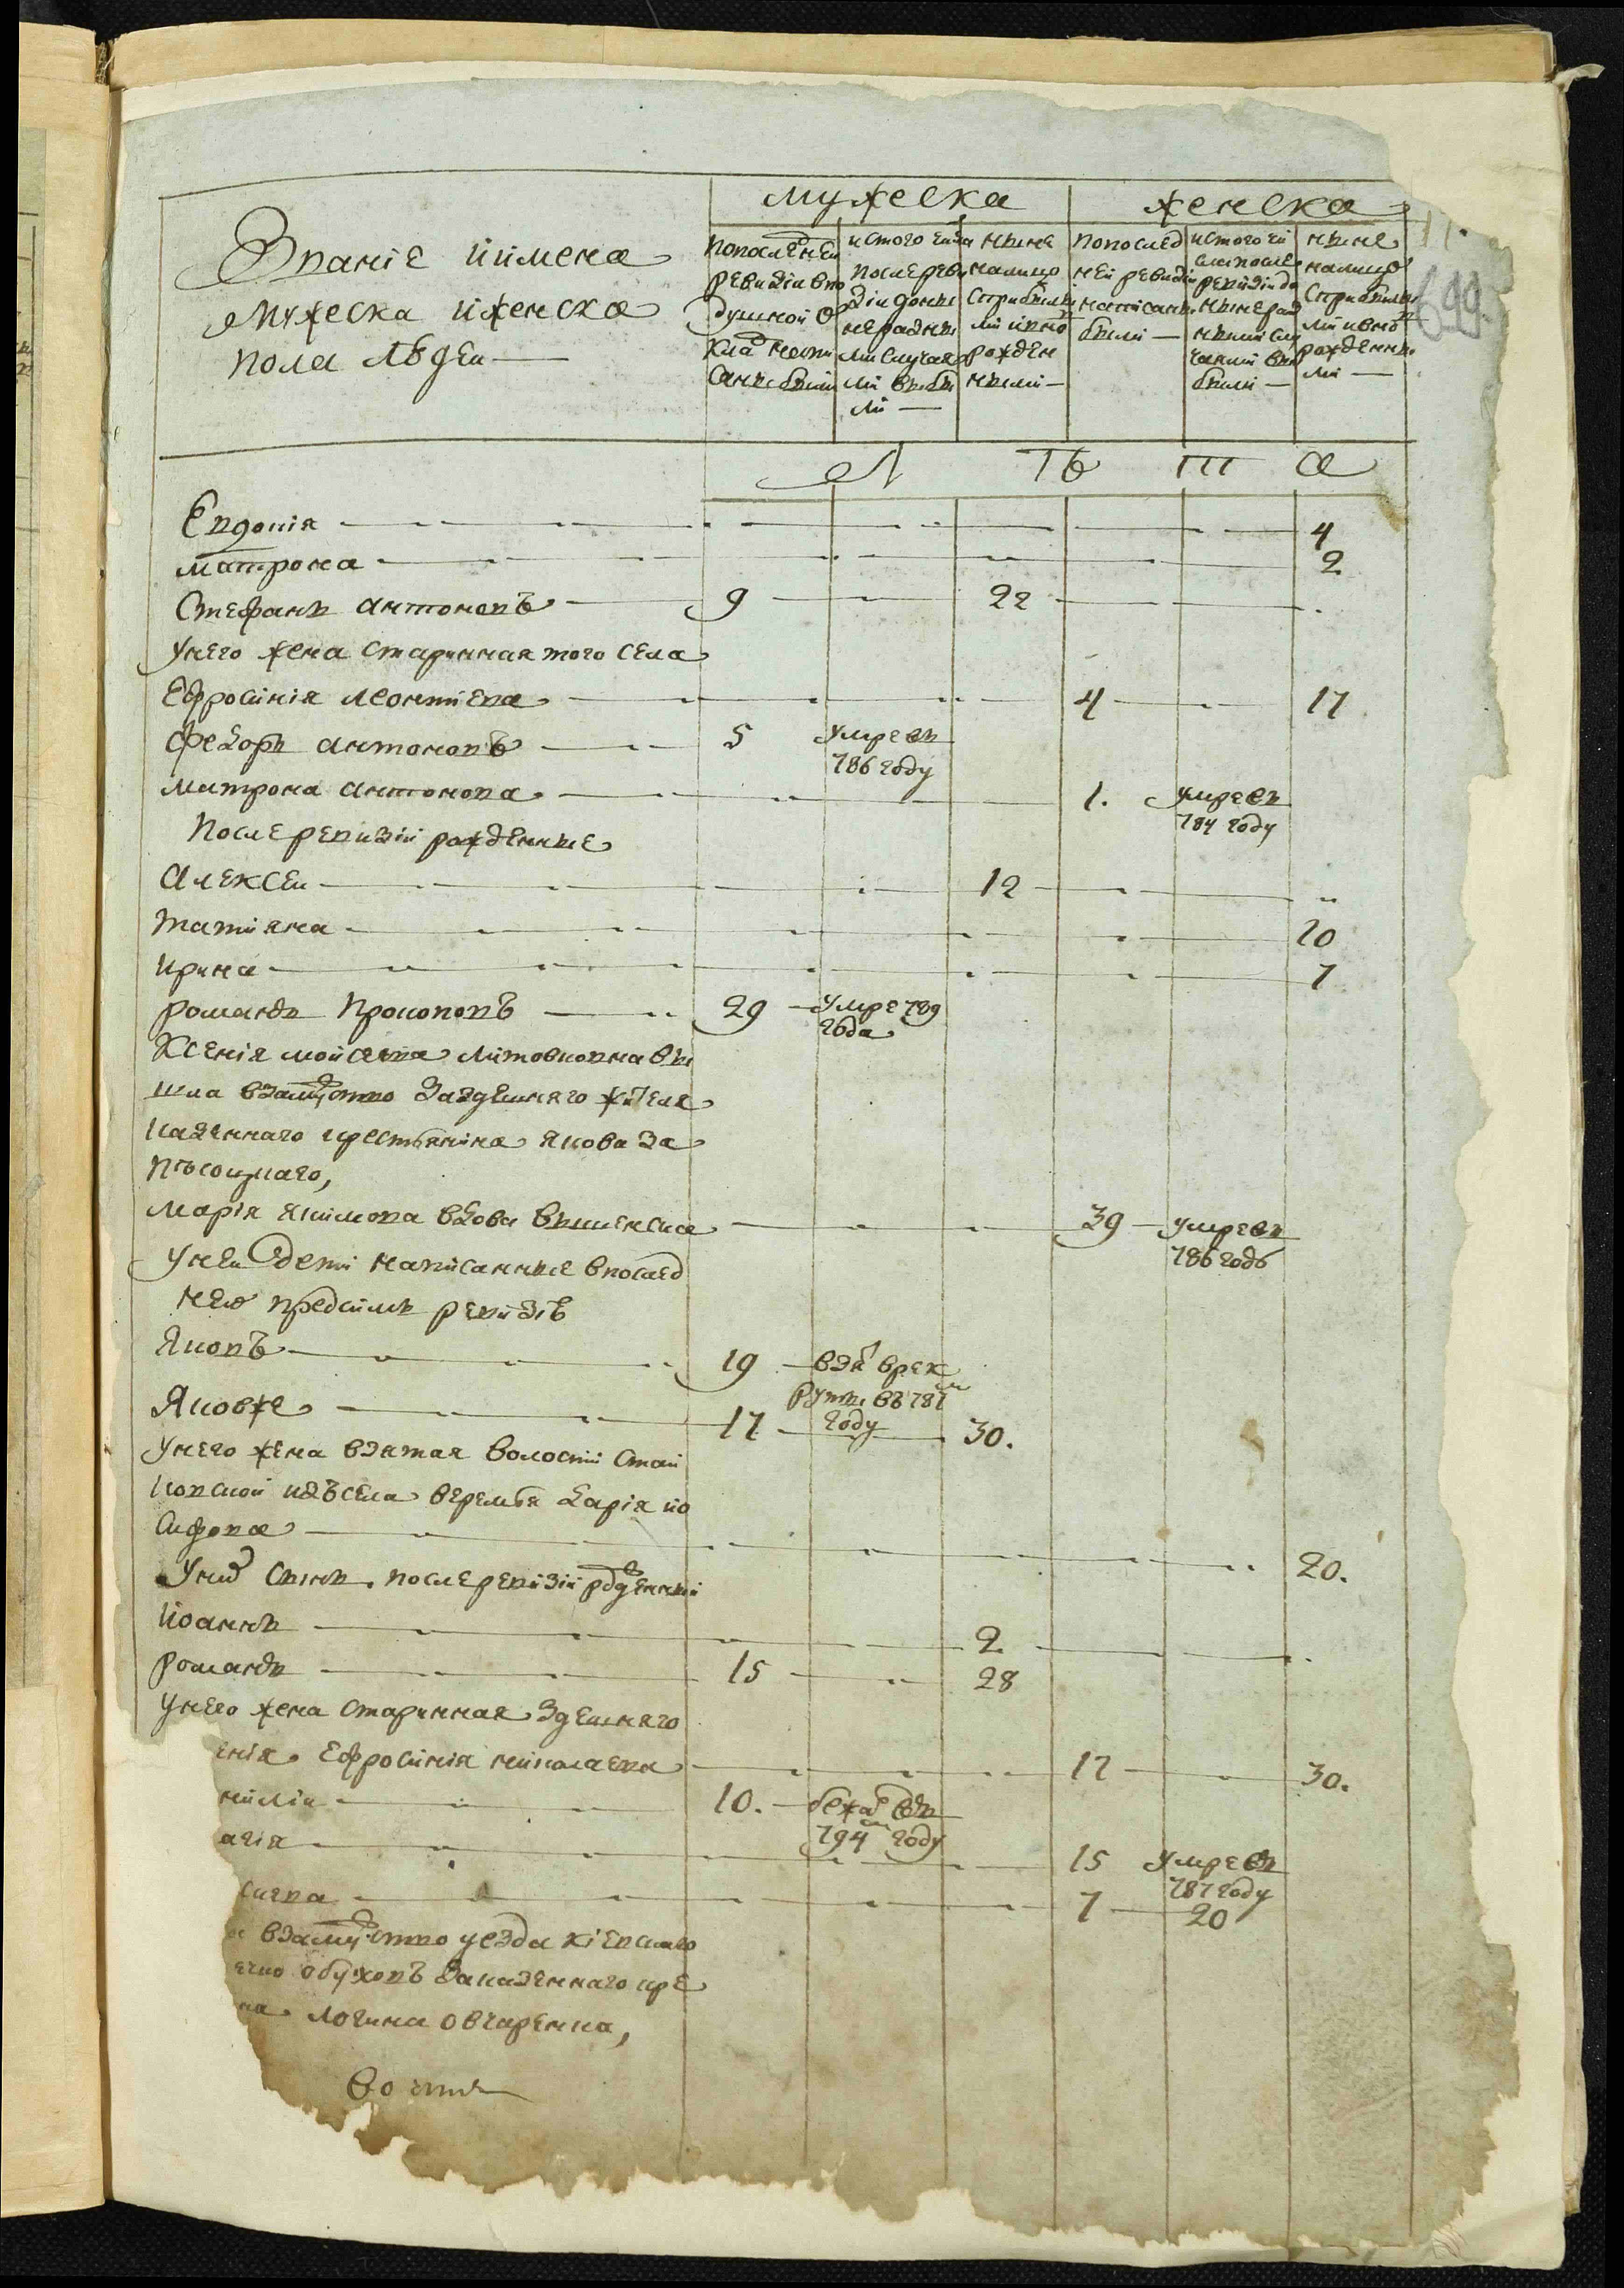 мужеска женска
Званіе иимена
мужеска иженска
пола людеи
попоследнеи ревизіи в подушной окладъ написаны были
истого числа после ревизіи доныне разными случаями выбыли
ныне налицо сприбылыми ивновь рожденными
попоследней ревизіи написаны были
истого числа после ревизіи доныне разными случаями выбыли
ныне налицо сприбылыми ивновь рожденными
699.
Л ѣ т а
Евдокія 4
матрона 2
Стефанъ антоновъ 9 22
унего жена старинная того села
Ефросинія леонтиева 4 17
Федоръ антоновъ 5 умре въ
786 году
матрона антонова 1. умре въ
784 году
После ревизіи рожденные
Алексеи 12
татияна 10
ирина 7
романъ Прокоповъ 29 умре 789
года
Ксенія мойсеева литовковна вы
шла взамужство заздешняго жителя
казеннаго крестьянина якова за
песоцкаго,
марія якимова вдова вышенска 39 умре въ
786 годъ
унеи дети написанные впослед
нею предсимъ ревизіѣ
Яковъ 19 взятъ врек
руты въ 787
году
Яковже 17 30.
унего жена взятая волости стай
ковской изъ села веремья дарія ио
сифова 20.
уних сынъ после ревизіи рожденный
иоаннъ 2
романъ 15 28
унего жена старинная здешняго
енія Ефросинія николаева 17 30.
ниліи 10. бежалъ въ
794 году
агія 15 умре въ
787 году
сиева 7 20
взамужство уезда кіевскаго
ечко обуховъ заказеннаго кре
на логина овчаренка,